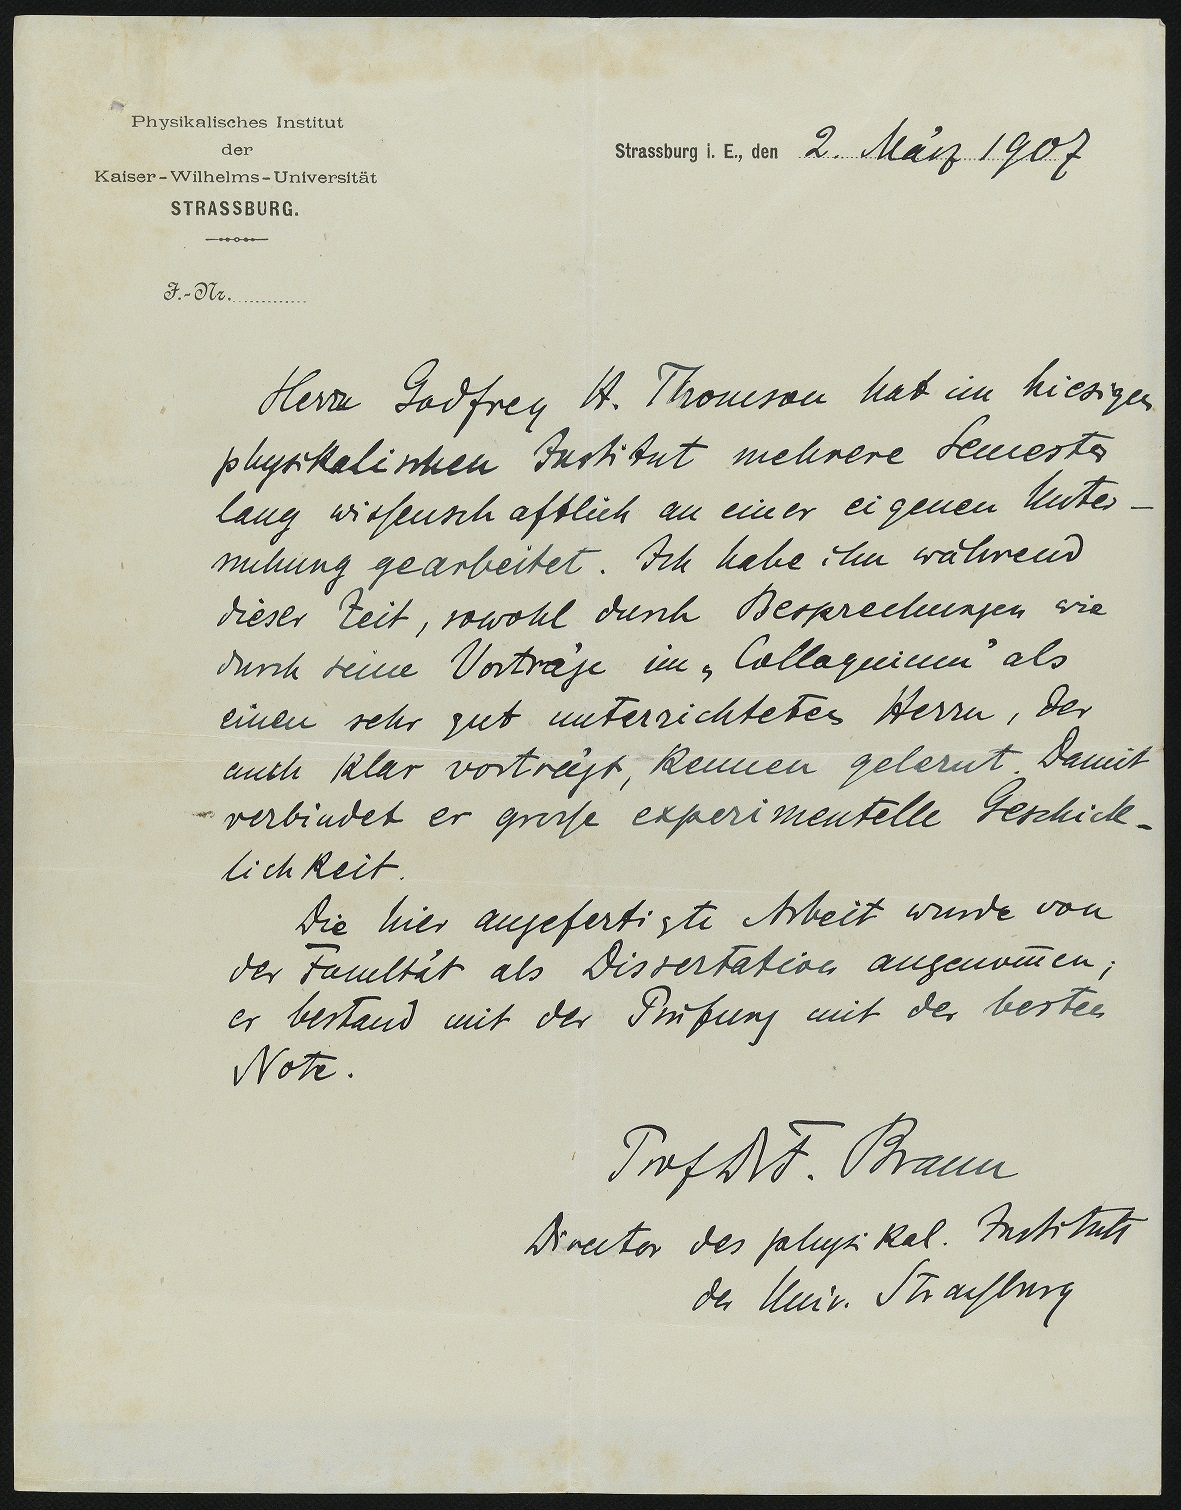 Physikalisches Institut
der
Kaiser-Wilhelms-Universität
STRASSBURG.
J.-Nr.
Strassburg i. E., den 2. März 1907
Herrn Godfrey H. Thomson hat im hiesigen
physikalischen Institut mehrere Semester
lang wissenschaftlich an einer eigenen Unter-
suchung gearbeitet. Ich habe ihn während
dieser Zeit, sowohl durch Besprechungen wie
durch seine Vorträge im „Colloquium" als
einen sehr gut unterrichteten Herrn, der
auch klar vorträgt, kennen gelernt. Damit
verbindet er große experimentelle Geschick-
lichkeit.
Die hier angefertigte Arbeit wurde von
der Facultät als Dissertation angenom̅en;
er bestand mit der Prüfung mit der besten
Note.
Prof Dr F. Braun
Director des physikal. Instituts
der Univ. Straßburg